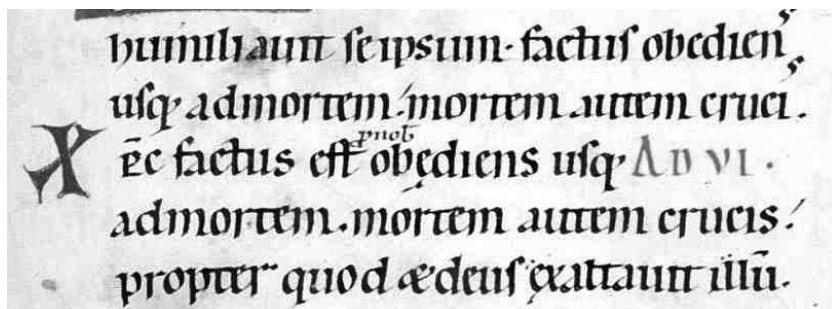 humiliauit seipsum· factus obediens
usq; ad mortem! mortem autem crucis.
XPC factus est p nob obediens usq; AD VI·
ad mortem. mortem autem crucis!
propter quod & deus exaltauit illū.